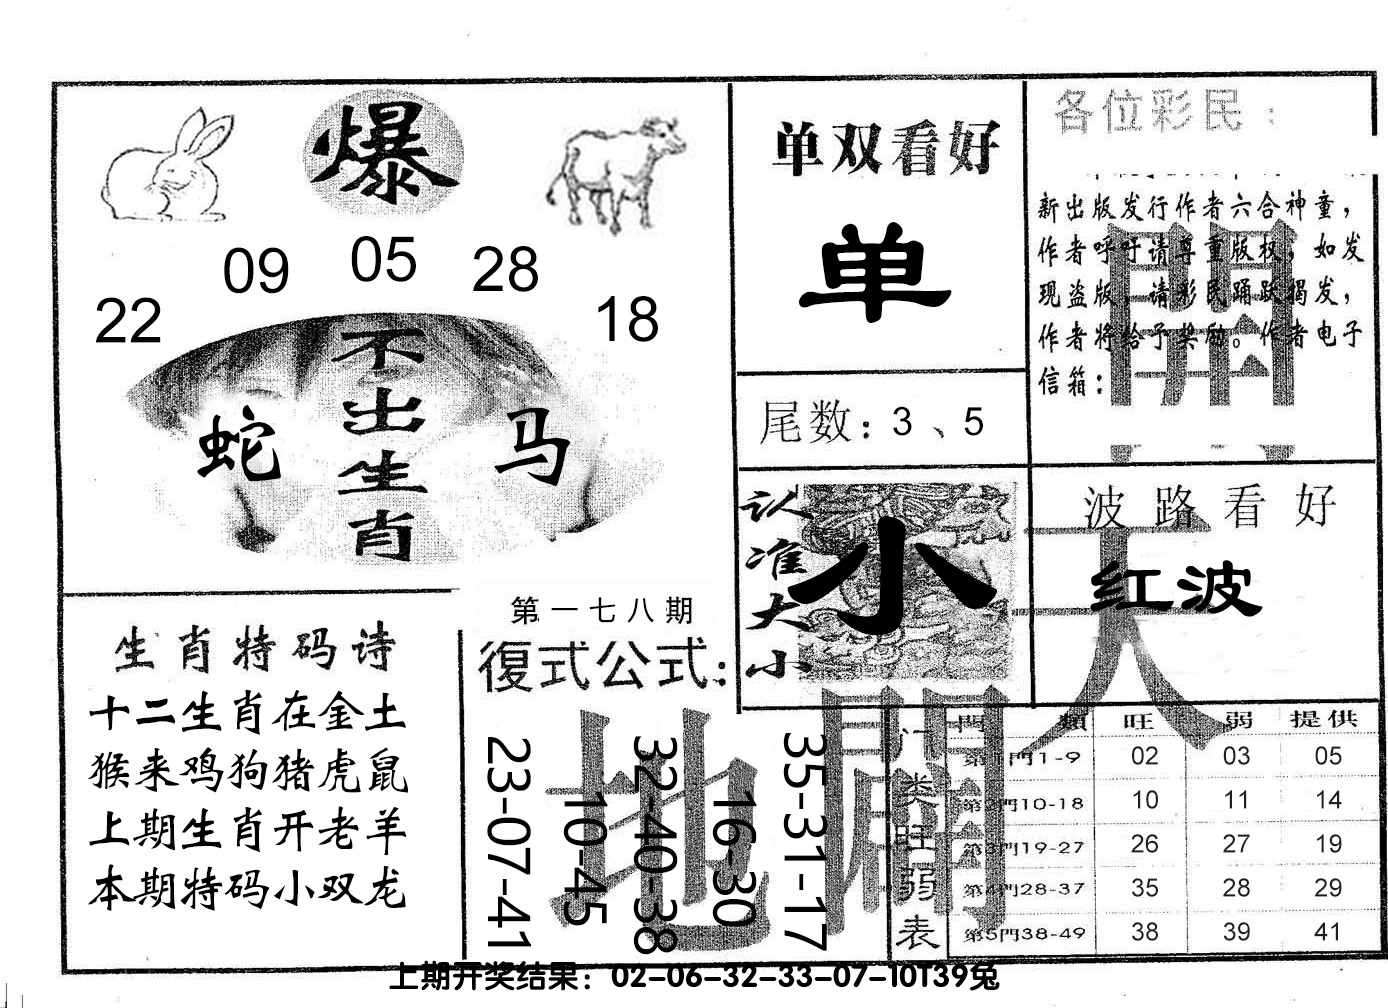 爆
22 09 05 28 18
不出生肖
蛇 马
单双看好
单
尾数：3、5
认准大小
小
各位彩民：
新出版发行作者六合神童，
作者呼吁请尊重版权，如发
现盗版，请彩民踊跃揭发，
作者将给予奖励。作者电子
信箱：
波路看好
红波
天
地
開
闢
生肖特码诗
十二生肖在金土
猴来鸡狗猪虎鼠
上期生肖开老羊
本期特码小双龙
第一七八期
復式公式：
23-07-41
10-45
32-40-38
16-30
35-31-17
门类旺弱表
門類 旺 弱 提供
第1門1-9 02 03 05
第2門10-18 10 11 14
第3門19-27 26 27 19
第4門28-37 35 28 29
第5門38-49 38 39 41
上期开奖结果：02-06-32-33-07-10T39兔